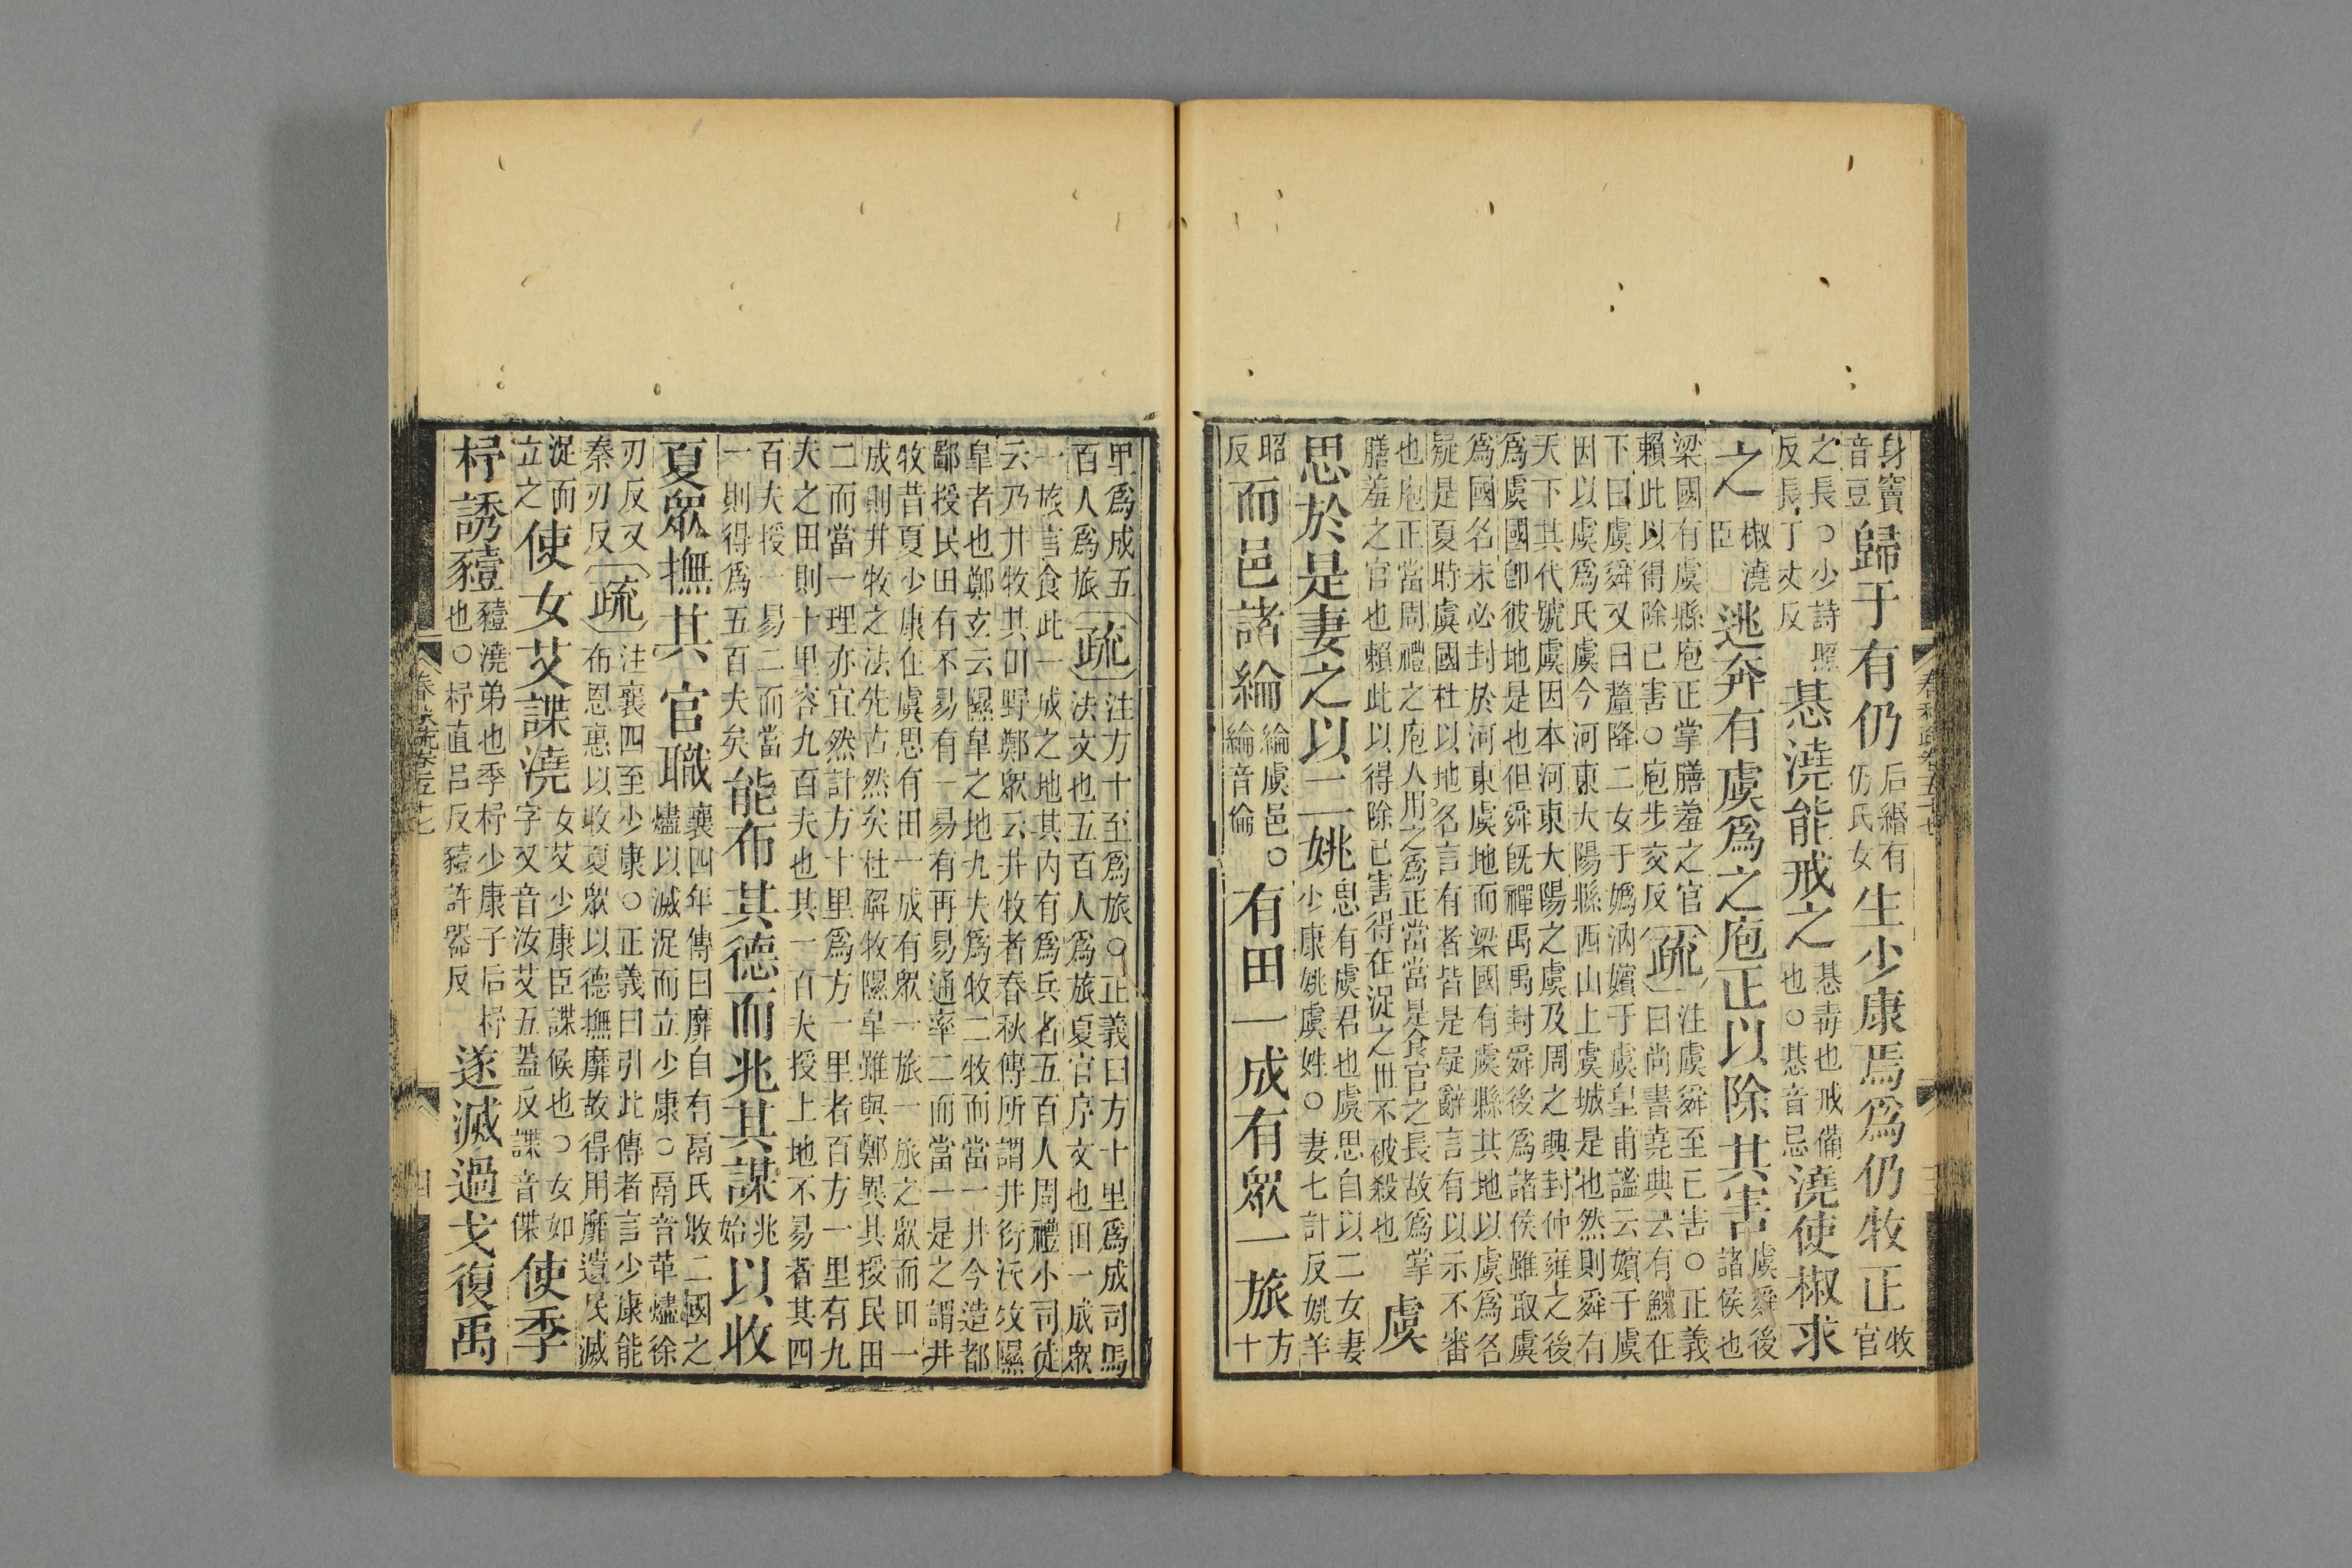 身竇音豆歸于有仍后緡有仍氏女生少康焉爲仍牧正牧官
之長○少詩照反長丁丈反惎澆能戒之惎毒也戒備也○惎音忌澆使椒求
之椒澆臣逃奔有虞爲之庖正以除其害虞舜後諸侯也
梁國有虞縣庖正掌膳羞之官賴此以得除己害○庖步交反疏注虞舜至己害○正義曰尚書堯典云有鰥在
下曰虞舜又曰釐降二女于嬀汭嬪于虞皇甫謐云嬪于虞
因以虞爲氏虞今河東大陽縣西山上虞城是也然則舜有
天下其代號虞因本河東大陽之虞及周之興封仲雍之後
爲虞國卽彼地是也但舜旣禪禹禹封舜後爲諸侯雖取虞
爲國名未必封於河東虞地而梁國有虞縣其地以虞爲名
疑是夏時虞國杜以地名言有者皆是疑辭言有以示不審
也庖正當周禮之庖人用之爲正當當是食官之長故爲掌
膳羞之官也賴此以得除己害得在浞之世不被殺也虞
思於是妻之以二姚思有虞君也虞思自以二女妻少康姚虞姓○妻七計反姚羊
昭反而邑諸綸綸虞邑○綸音倫有田一成有眾一旅方十
里爲成五百人爲旅疏注方十至爲旅○正義曰方十里爲成司馬法文也五百人爲旅夏官序文也田一成眾
一旅言食此一成之地其内有爲兵者五百人周禮小司徒
云乃井牧其田野鄭眾云井牧者春秋傳所謂井衍沃牧隰
皐者也鄭玄云隰皐之地九夫爲牧二牧而當一井今造都
鄙授民田有不易有一易有再易通率二而當一是之謂井
牧昔夏少康在虞思有田一成有眾一旅一旅之眾而田一
成則井牧之法先古然矣杜解牧隰皐雖與鄭異其授民田
二而當一理亦宜然計方十里爲方一里者百方一里有九
夫之田則十里容九百夫也其一百夫授上地不易者其四
百夫授一易二而當一則得爲五百夫矣能布其德而兆其謀兆始以收
夏眾撫其官職襄四年傳曰靡自有鬲氏收二國之燼以滅浞而立少康○鬲音革燼徐
刃反又秦刃反疏注襄四至少康○正義曰引此傳者言少康能布恩惠以收夏眾以德撫靡故得用靡遺民滅
浞而立之使女艾諜澆女艾少康臣諜候也○女如字又音汝艾五蓋反諜音牒使季
杼誘豷豷澆弟也季杼少康子后杼也○杼直呂反豷許器反遂滅過戈復禹
春秋疏卷五十七
四